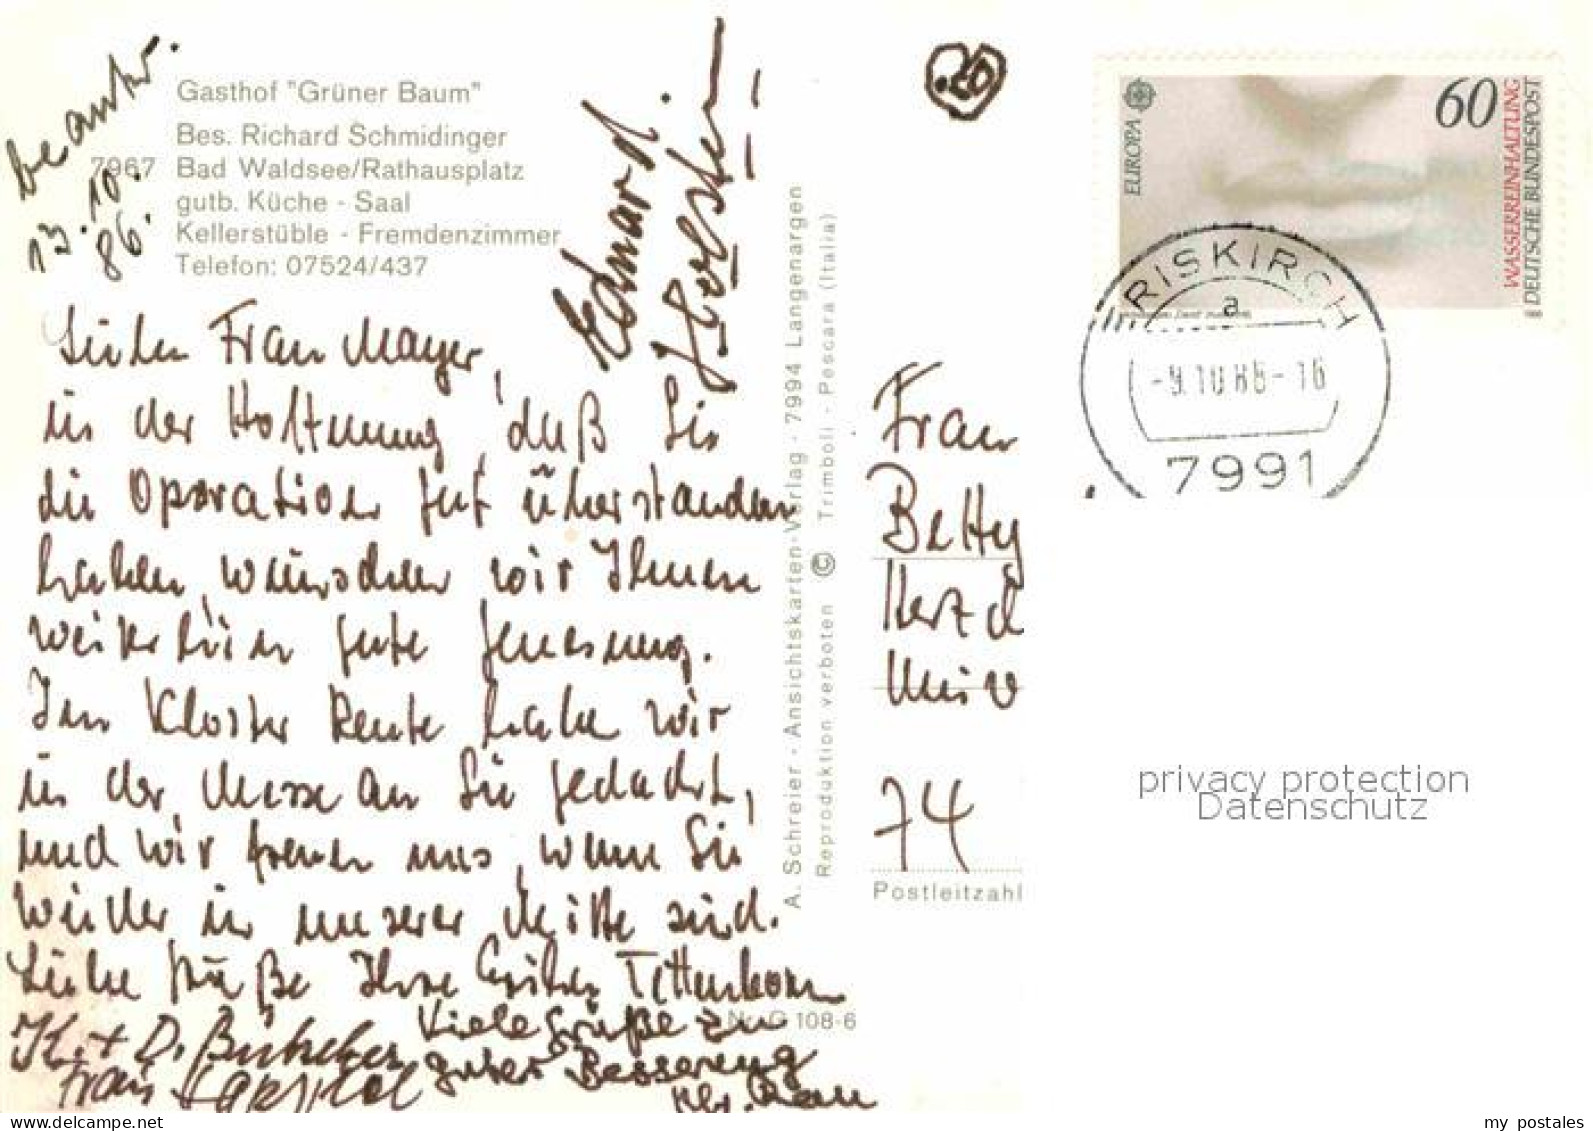 beantw.
13.10.
86.
Gasthof "Grüner Baum"
Bes. Richard Schmidinger
7967 Bad Waldsee/Rathausplatz
gutb. Küche - Saal
Kellerstüble - Fremdenzimmer
Telefon: 07524/437
Liebe Frau Mayer,
in der Hoffnung, daß Sie
die Operation gut überstanden
haben, wünschen wir Ihnen
weiterhin gute Genesung.
Im Kloster Reute haben wir
in der Messe an Sie gedacht,
und wir freuen uns, wenn Sie
wieder in unserer Mitte sind.
Liebe Grüße Ihre Tettenborn
K. + D. Böttcher
Viele Grüße zu
guter Besserung
Frau
Eduard
Holstein
A. Schreier - Ansichtskarten-Verlag - 7994 Langenargen
Reproduktion verboten © Trimboli - Pescara (Italia)
Nr. G 108-6
20
EUROPA
60
WASSERREINHALTUNG
DEUTSCHE BUNDESPOST
ERISKIRCH
a
-9.10.86-16
7991
Frau
Betty
74
Postleitzahl
privacy protection
Datenschutz
my postales